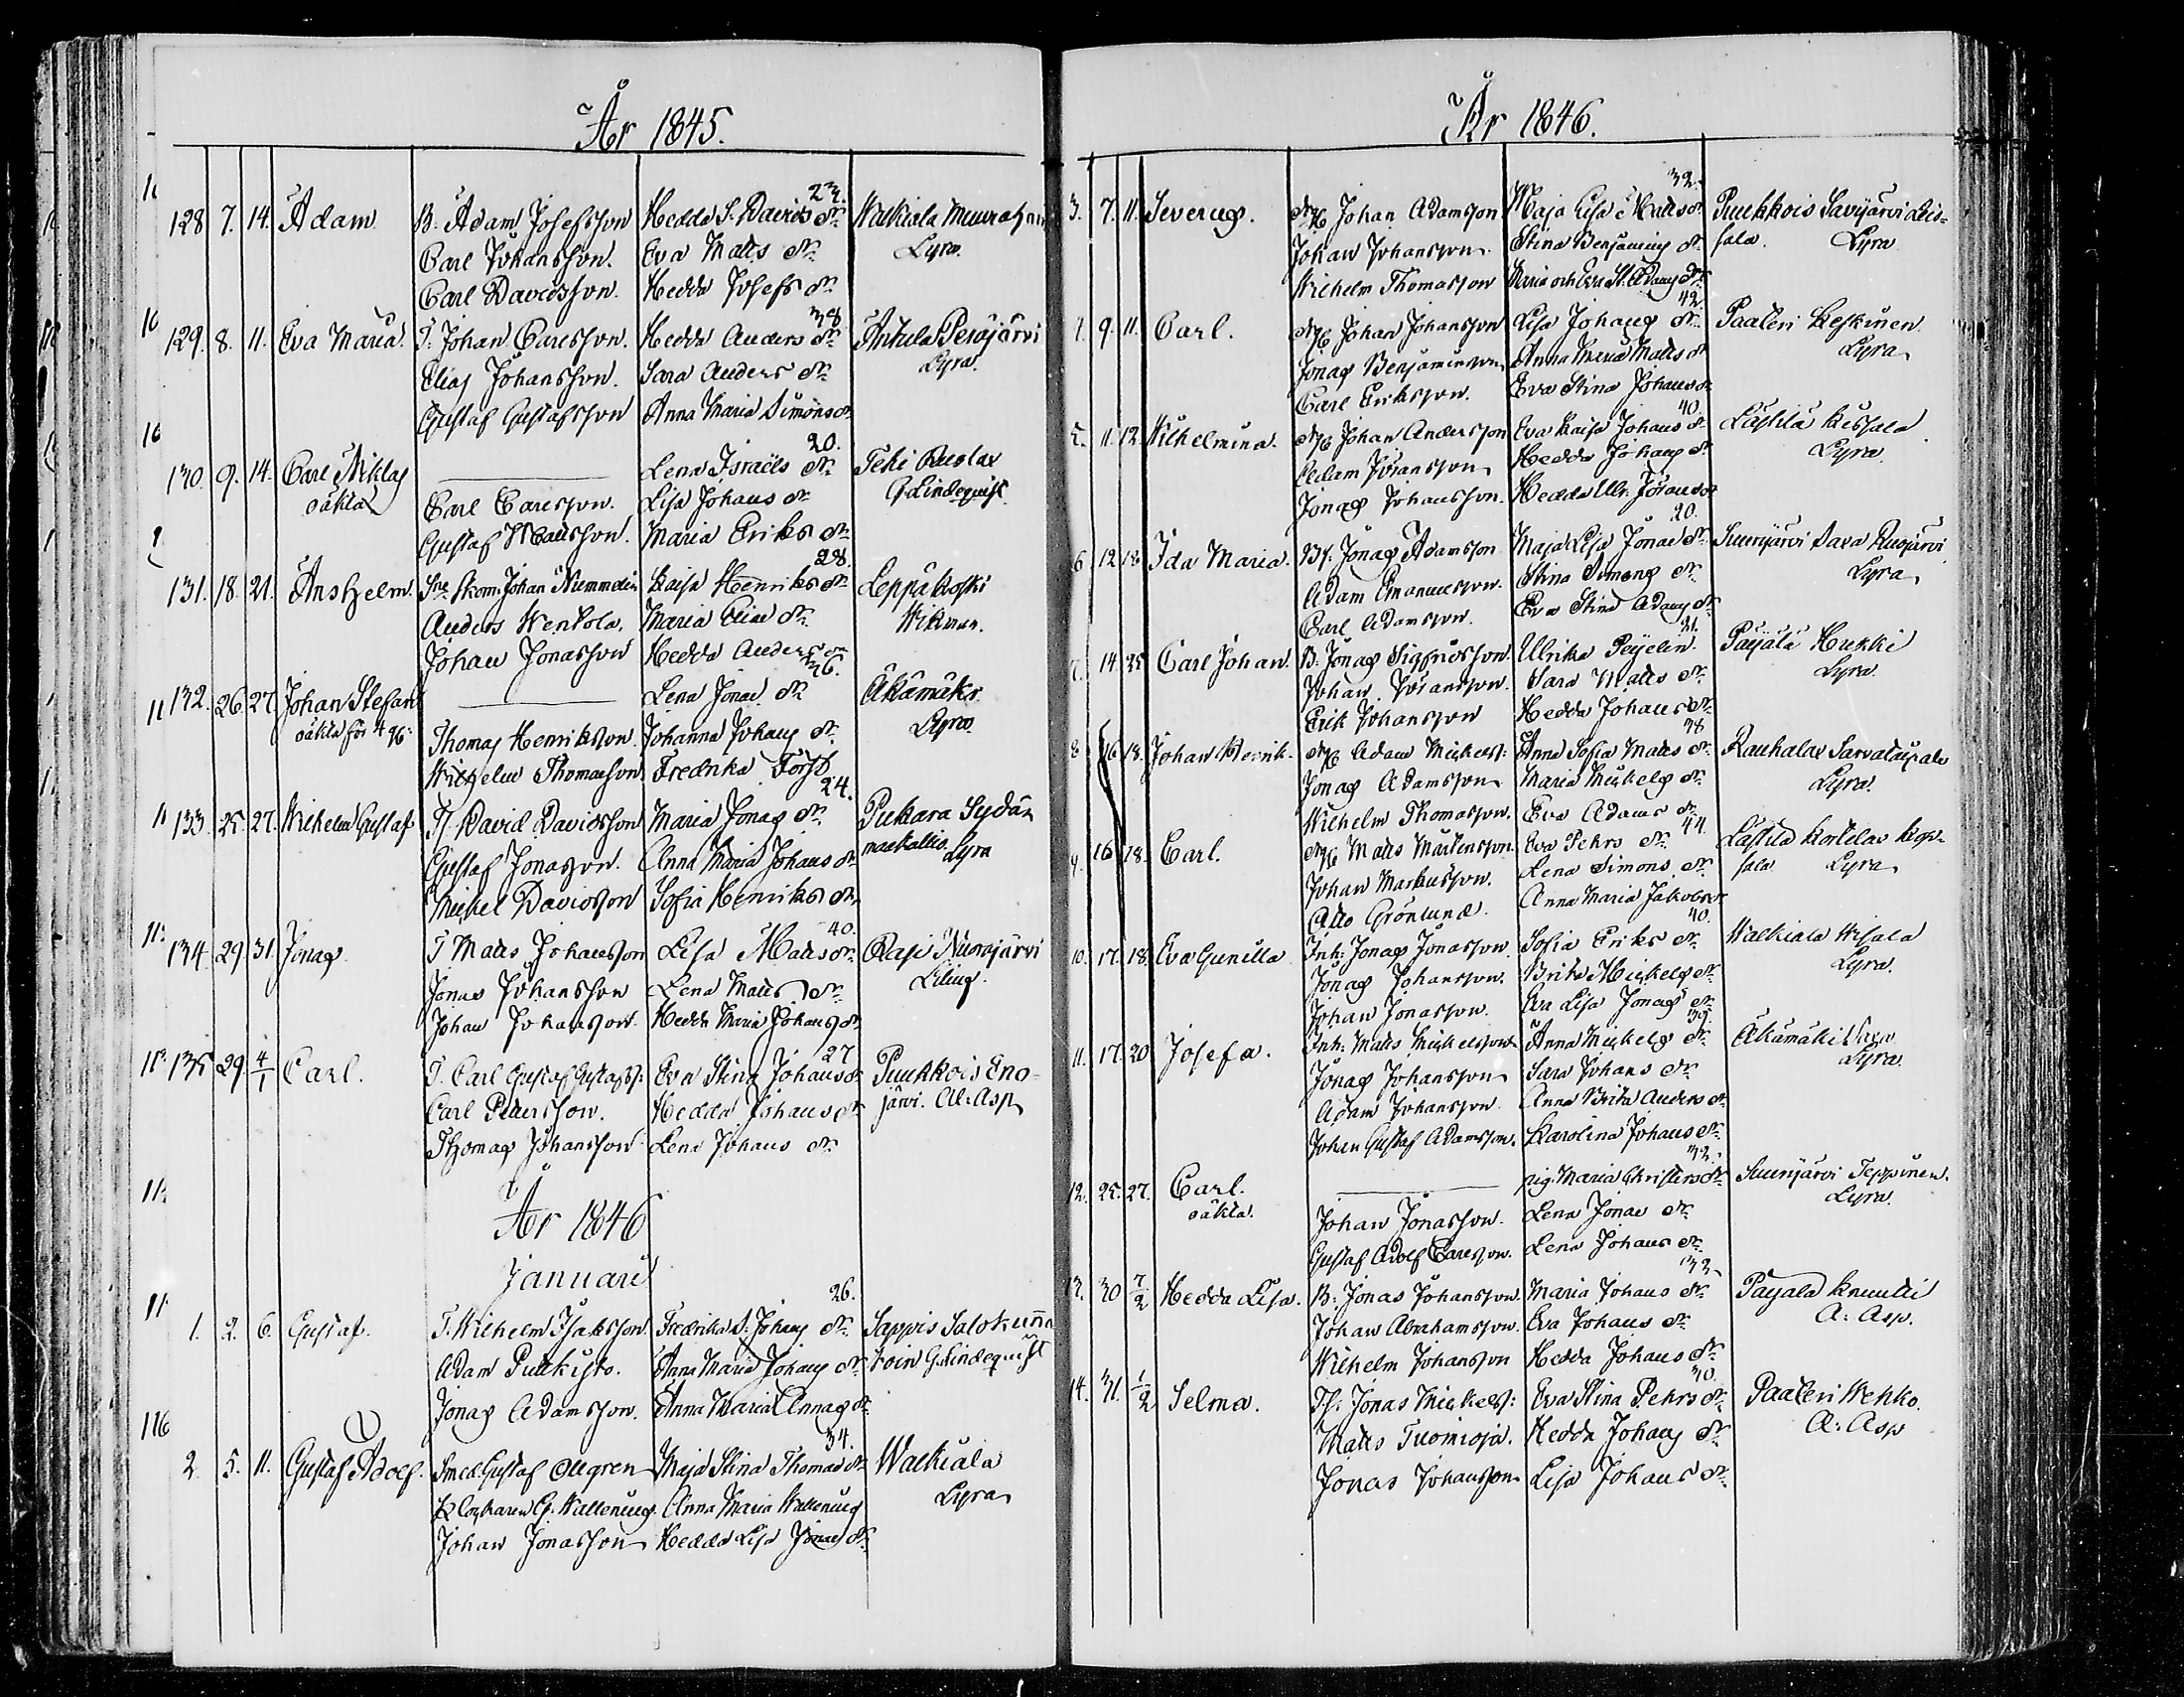 År 1845.
128 7. 14. Adam B. Adam Josefsson Hedda S. Davids dr. 23. Walkiala
Carl Johansson. Eva Matts dr. Lyra.
Carl Davidsson. Hedda Josefs dr
129. 8. 11. Eva Maria. T. Johan Carlsson. Hedda Anders dr 38 Anttila Peräjärvi
Elias Johansson. Sara Anders dr Lyra.
Gustaf Gustafsson Anna Maria Simons dr
130. 9. 14. Carl Niklas Lena Israels dr 20. Teki
oäkta Carl Carlsson. Lisa Johans dr G. Lindequist
Gustaf Mattsson. Maria Eriks dr
131. 18. 21. Anshelm. Skom. Johan Nummelin Kaisa Henriks dr 28. Leppäkoski
Anders Wenkola. Maria Elias dr Wikman.
Johan Jonasson Hedda Anders dr
132. 26. 27. Johan Stefan Lena Jonas dr 36. Äkämäki
oäkta för 4 Thomas Henriksson. Johanna Johans dr Lyra.
Wilhelm Thomasson Fredrika Forss
133. 25. 27. Wilhelm Gustaf Tf. David Davidsson Maria Jonas dr 24. Pukara Sydän
Gustaf Jonasson. Anna Maria Johans dr maakallio. Lyra
Mickel Davidsson Sofia Henriks dr
134. 29. 31. Jonas T Matts Johansson Lisa Matts dr. 40. Rasi Nuorajärvi
Jonas Johansson Lena Matts dr Lilius.
Johan Johansson. Hedda Maria Johans dr
135 29. 4/1 Carl. T. Carl Gustaf Gustafss: Eva Stina Johans dr 27 Puukkois Eno-
Carl Petersson. Hedda Johans dr järvi. A: Asp
Thomas Johansson Lena Johans dr
År 1846
Januari
1. 2. 6. Gustaf. T. Wilhelm Isaksson Fredrika S. Johans dr 26. Sappis
Adam Puukisto. Anna Maria Johans dr G. Lindequist
Jonas Adamsson. Anna Maria Annas dr
2. 5. 11. Gustaf Adolf. Smed. Gustaf Allgren Maja Stina Thomas dr 34. Walkiala
Klockaren G. Wallenius. Anna Maria Wallenius Lyra
Johan Jonasson Hedda Lisa Jonas dr
År 1846.
3. 7. 11. Severus. Johan Adamsson Maja Lisa Matts dr 32. Puukkois Savijärvi Leis-
Johan Johansson Stina Benjamins dr sala. Lyra
Wilhelm Thomasson Maria och Eva St. Adams dr
9. 11. Carl. Johan Johansson Lisa Johans dr 42 Paateri Keskinen
Jonas Benjaminsson Anna Maria Matts dr Lyra
Carl Eriksson. Eva Stina Johans dr
5. 11. 12. Wilhelmina. Johan Andersson Eva Kaisa Johans dr 40. Lastila Kissala
Adam Johansson Hedda Johans dr Lyra
Jonas Johansson. Hedda Ulr. Johans dr
6 12 18 Ida Maria. Jonas Adamsson Maja Lisa Jonas dr 20. Suurijärvi
Adam Emanuelsson. Stina Simons dr Lyra
Carl Adamsson. Eva Stina Adams dr
7. 14 25 Carl Johan. B. Jonas Sigfridsson. Ulrika Peijelin. Paijala Hukki
Johan Johansson. Sara Matts dr Lyra.
Erik Johansson Hedda Johans dr
8 16 18. Johan Henrik. Adam Mickelss: Anna Sofia Matts dr 38 Rauhala
Jonas Adamsson Maria Mickels dr Lyra.
Wilhelm Thomasson. Eva Adams dr
9. 16 18. Carl. Matts Mårtensson. Eva Pehrs dr 44. Lastila
Johan Markusson. Lena Simons dr sala Lyra
Otto Grönlund. Anna Maria Jakobs dr
10. 17. 18. Eva Gunilla Inh: Jonas Jonasson. Sofia Eriks dr 40. Walkiala
Jonas Johansson. Brita Mickels dr Lyra.
Johan Jonasson. Eva Lisa Jonas dr
11. 17. 20 Josefa. Inh: Matts Mickelsson Anna Mickels dr 39. Äkämäki
Jonas Johansson Sara Johans dr Lyra.
Adam Johansson. Anna Brita Anders dr
Johan Gustaf Adamsson. Karolina Johans dr
12. 25. 27. Carl. pig. Maria Christers dr 32. Suurijärvi Teppinen.
oäkta. Johan Jonasson. Lena Jonas dr Lyra.
Gustaf Adolf Carlsson. Lena Johans dr
13. 30 7/2 Hedda Lisa. B: Jonas Johansson. Maria Johans dr 32 Paijala Knuuti
Johan Abrahamsson. Eva Johans dr A: Asp.
Wilhelm Johansson Hedda Johans dr
14. 31. 1/2 Selma. Tf: Jonas Mickelss: Eva Stina Pehrs dr 30. Paateri Wehko.
Matts Tuomioja. Hedda Johans dr A: Asp
Jonas Johansson Lisa Johans dr